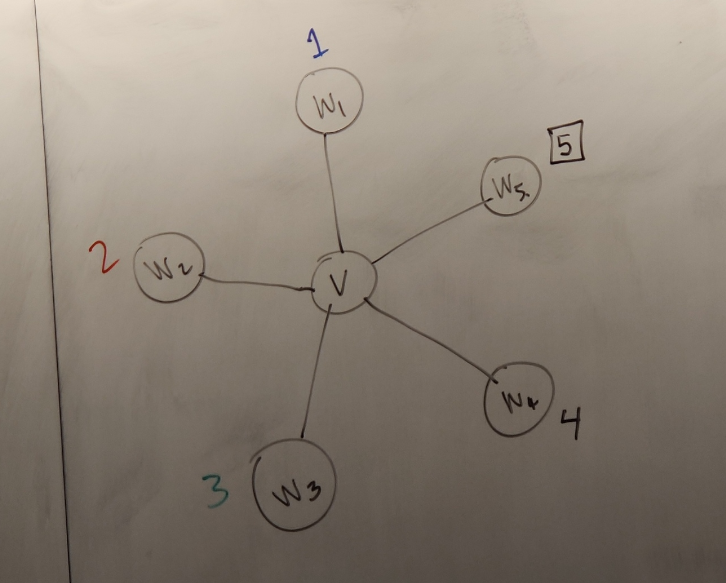 1
W1
5
W5
2
W2
V
W4
4
3
W3